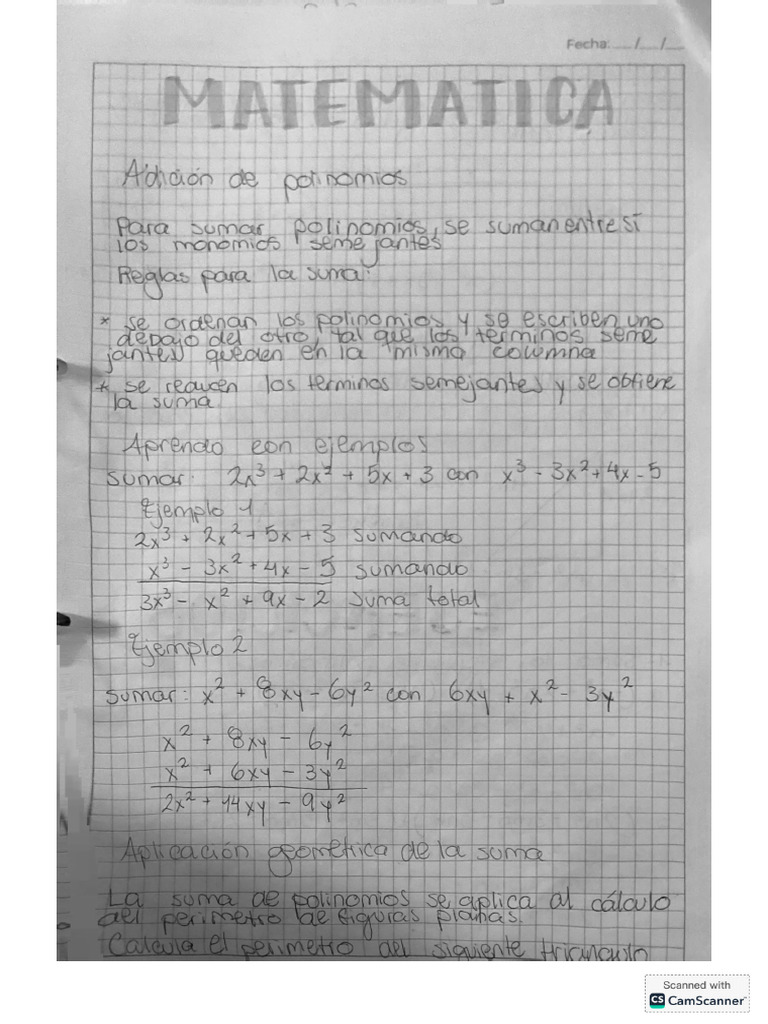 Fecha: __/__/__
MATEMATICA
Adición de polinomios
Para sumar polinomios, se suman entre sí
los monomios semejantes
Reglas para la suma:
* se ordenan los polinomios y se escriben uno
debajo del otro, tal que los terminos seme
jantes queden en la misma columna
* se reducen los terminos semejantes y se obtiene
la suma
Aprendo con ejemplos
sumar: 2x³ + 2x² + 5x + 3 con x³ - 3x² + 4x - 5
Ejemplo 1
2x³ + 2x² + 5x + 3 sumando
x³ - 3x² + 4x - 5 sumando
3x³ - x² + 9x - 2 suma total
Ejemplo 2
sumar: x² + 8xy - 6y² con 6xy + x² - 3y²
x² + 8xy - 6y²
x² + 6xy - 3y²
2x² + 14xy - 9y²
Aplicación geométrica de la suma
La suma de polinomios se aplica al cálculo
del perimetro de figuras planas.
Calcula el perimetro del siguiente triangulo
Scanned with
CS CamScanner